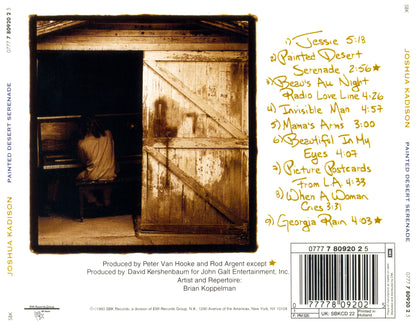 0777 7 80920 2 5
SBK
JOSHUA KADISON
PAINTED DESERT SERENADE
1) Jessie 5:13
2) Painted Desert
Serenade 2:56★
3) Beau's All Night
Radio Love Line 4:26
4) Invisible Man 4:57
5) Mama's Arms 3:00
6) Beautiful In My
Eyes 4:07
7) Picture Postcards
From L.A. 4:33
8) When A Woman
Cries 3:31
9) Georgia Rain 4:03★
Produced by Peter Van Hooke and Rod Argent except ★
Produced by David Kershenbaum for John Galt Entertainment, Inc.
Artist and Repertoire:
Brian Koppelman
0777 7 80920 2 5
0 07777 80920 2 5
UK: SBKCD 22
Printed in
Holland
SBK
JOSHUA KADISON
PAINTED DESERT SERENADE
0777 7 80920 2 5